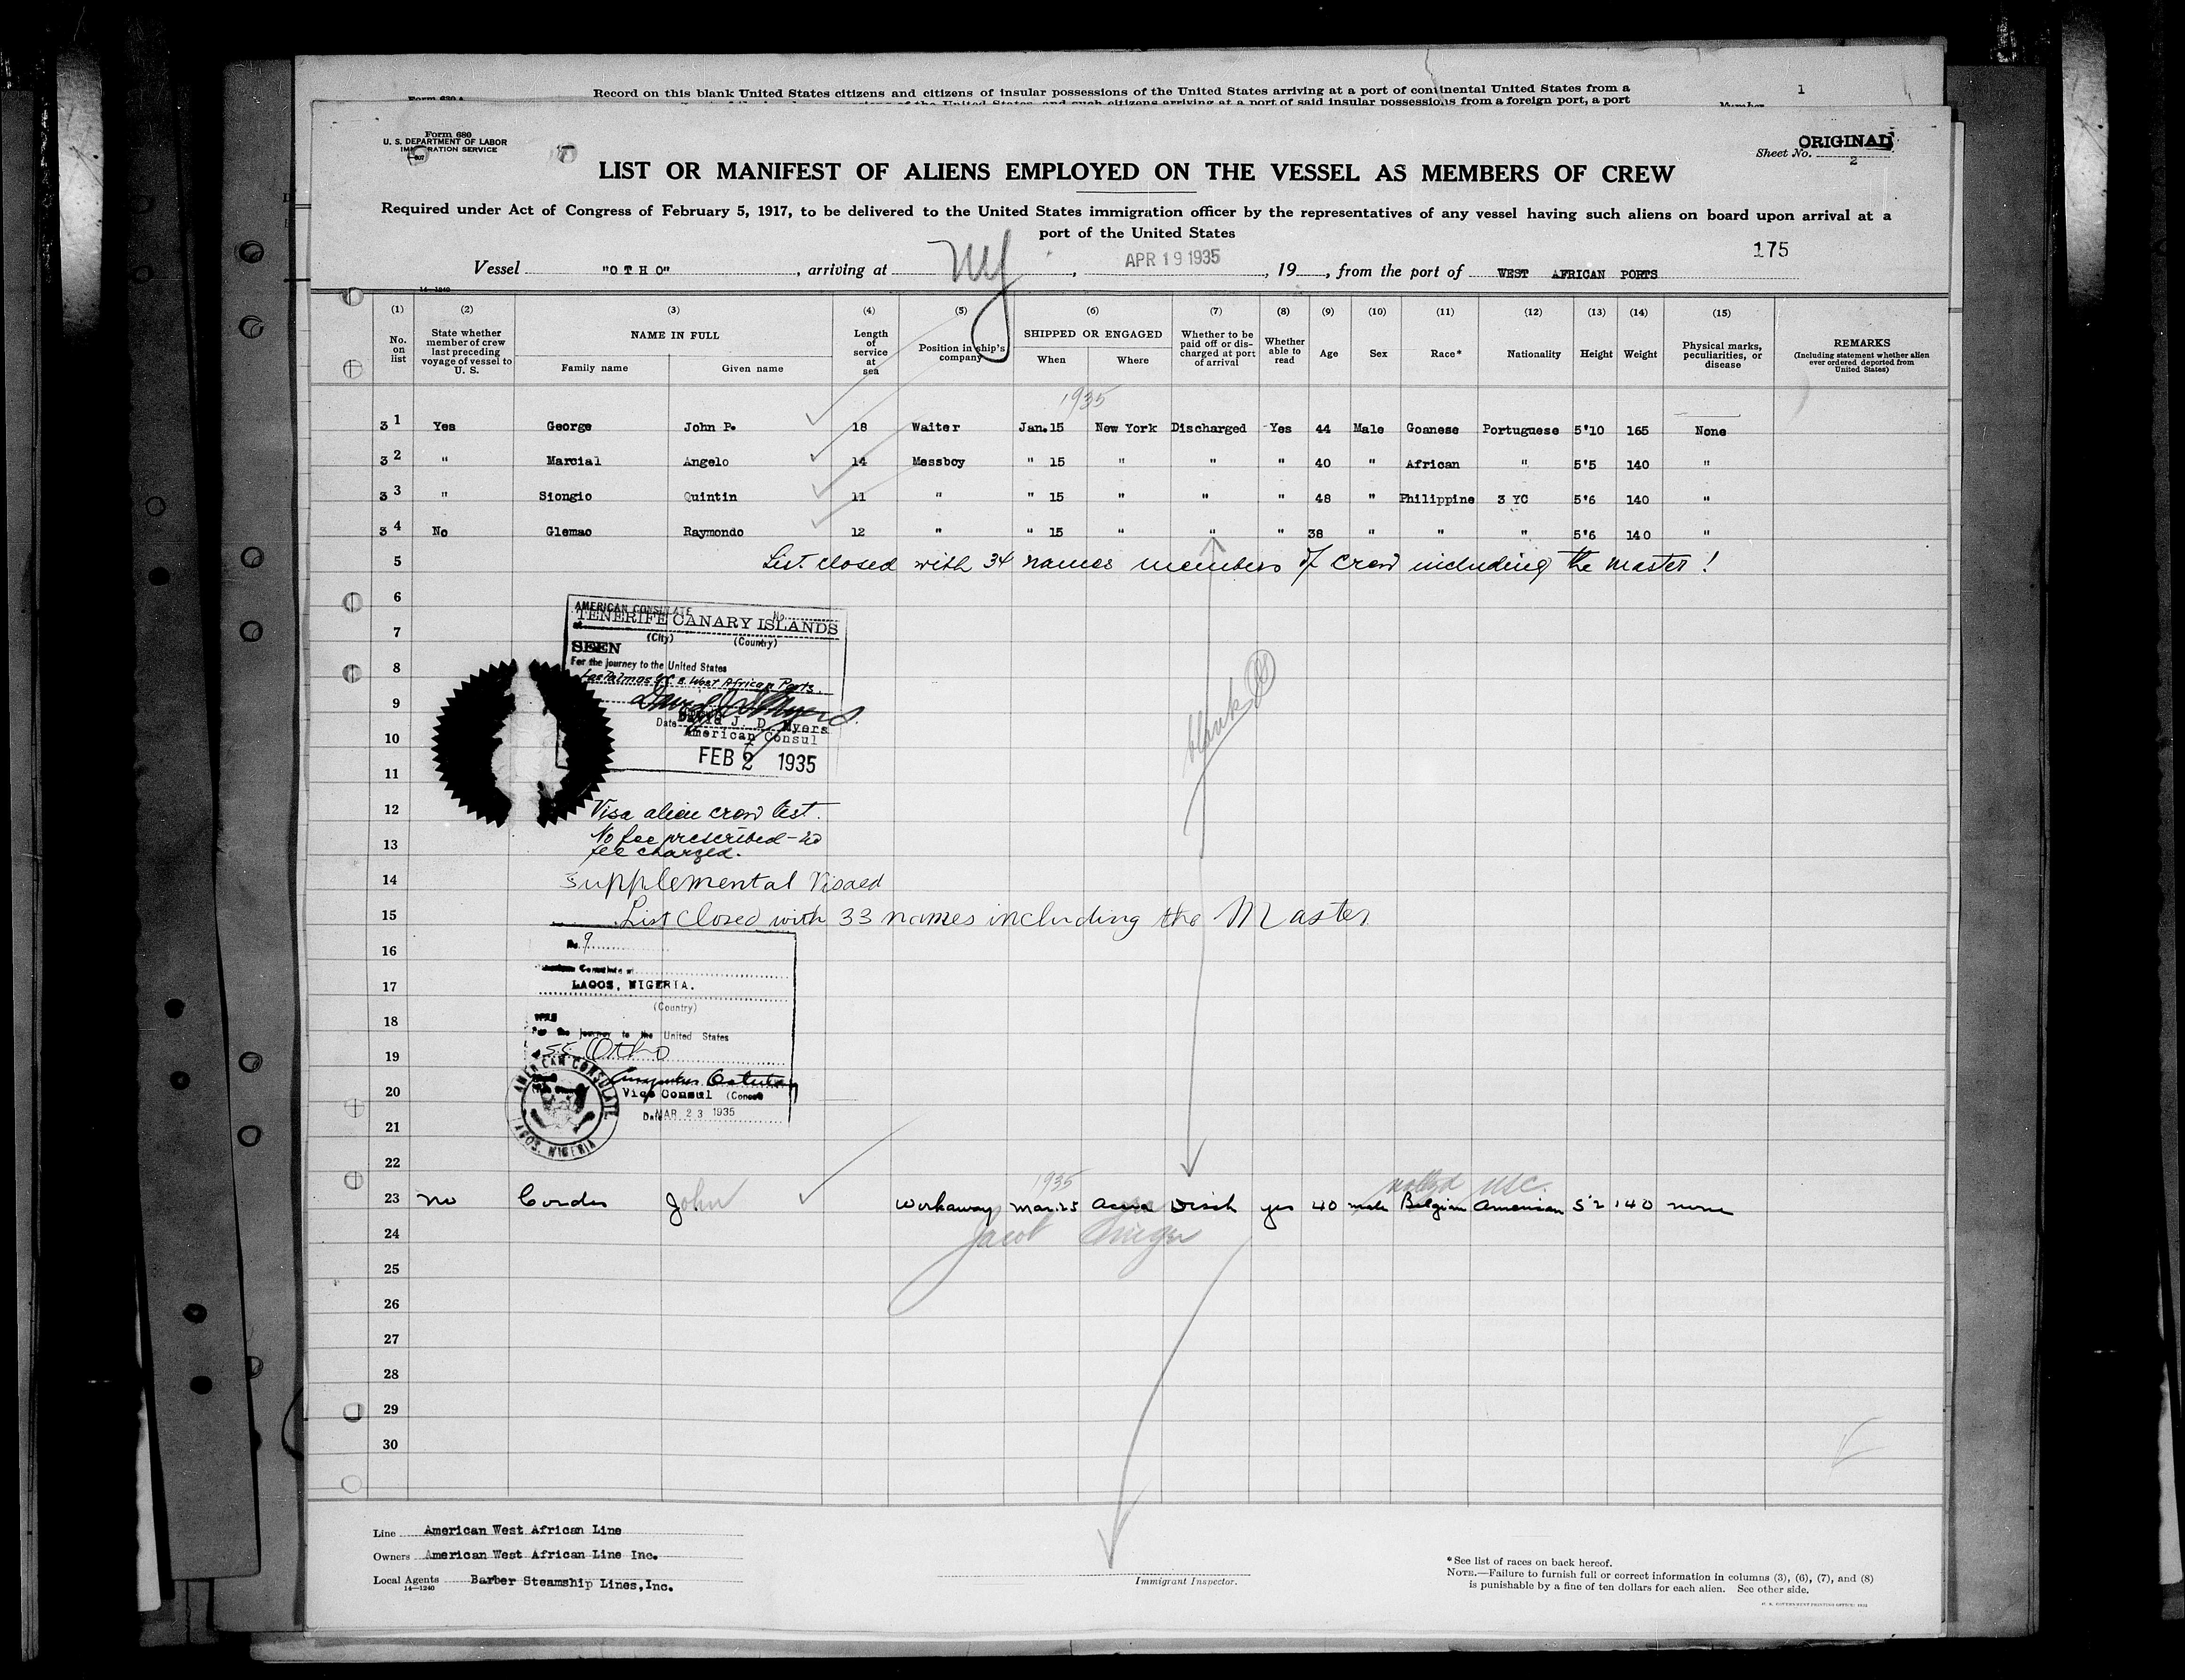 Record on this blank United States citizens and citizens of insular possessions of the United States arriving at a port of continental United States from a
1
Form 630
and such citizens arriving at a port of said insular possessions from a foreign port, a port
Form 680
U. S. DEPARTMENT OF LABOR
IMMIGRATION SERVICE
ORIGINAL
Sheet No. 2
LIST OR MANIFEST OF ALIENS EMPLOYED ON THE VESSEL AS MEMBERS OF CREW
Required under Act of Congress of February 5, 1917, to be delivered to the United States immigration officer by the representatives of any vessel having such aliens on board upon arrival at a
port of the United States
175
Vessel "O T H O", arriving at NY, APR 19 1935, 19, from the port of WEST AFRICAN PORTS
14—1240
(1) (2) (3) (4) (5) (6) (7) (8) (9) (10) (11) (12) (13) (14) (15)
No. on list
State whether member of crew last preceding voyage of vessel to U. S.
NAME IN FULL
Family name
Given name
Length of service at sea
Position in ship's company
SHIPPED OR ENGAGED
When
Where
Whether to be paid off or discharged at port of arrival
Whether able to read
Age
Sex
Race*
Nationality
Height
Weight
Physical marks, peculiarities, or disease
REMARKS
(Including statement whether alien ever ordered deported from United States)
1935
3 1 Yes George John P. 18 Waiter Jan. 15 New York Discharged Yes 44 Male Goanese Portuguese 5'10 165 None
3 2 " Marcial Angelo 14 Messboy " 15 " " " 40 " African " 5'5 140 "
3 3 " Siongio Quintin 11 " " 15 " " " 48 " Philippine 3 YC 5'6 140 "
3 4 No Glemao Raymondo 12 " " 15 " " " 38 " " " 5'6 140 "
5 List closed with 34 names members of crew including the master!
6
AMERICAN CONSULATE No.
TENERIFE CANARY ISLANDS
7
(City) (Country)
SEEN
For the journey to the United States
8
Las Palmas & West African Ports.
9
David J. D. Myers
Date David J. D. Myers
American Consul
10
FEB 2 1935
11
12 Visa alien crew list.
13 No fee prescribed - no
fee charged.
14 Supplemental Visaed
15 List Closed with 33 names including the Master
blank
16 No. 9
American Consulate at
17 LAGOS, NIGERIA.
(Country)
18
For the journey to the United States
19 SS Otho
AMERICAN CONSULATE
LAGOS, NIGERIA
20 Vice Consul
Date MAR 23 1935
21
22
1935 USC.
23 no Cordes John Workaway Mar. 25 Accra Disch yes 40 male Belgian American 5'2 140 none
24 Jacob
25
26
27
28
29
30
Line American West African Line
Owners American West African Line Inc.
Local Agents Barber Steamship Lines, Inc.
14—1240
Immigrant Inspector.
*See list of races on back hereof.
NOTE.—Failure to furnish full or correct information in columns (3), (6), (7), and (8)
is punishable by a fine of ten dollars for each alien. See other side.